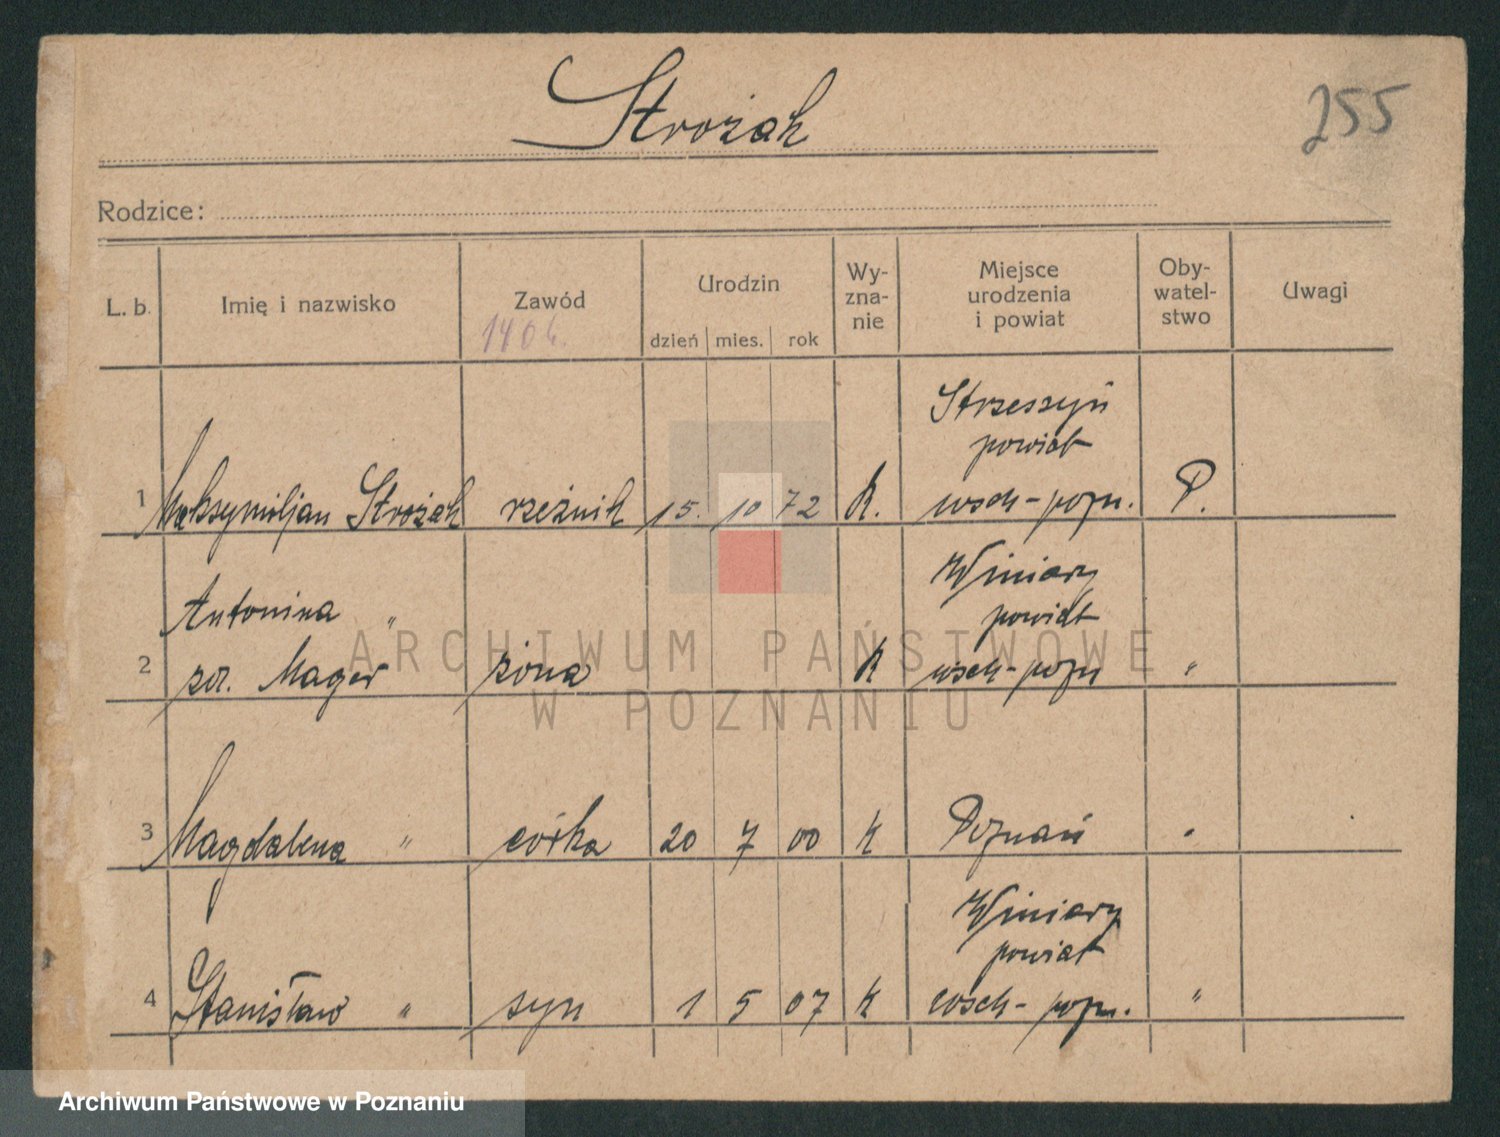 Strożak
255
Rodzice:
L. b. Imię i nazwisko Zawód Urodzin dzień mies. rok Wyznanie Miejsce urodzenia i powiat Obywatelstwo Uwagi
1406.
Strzeszyń
powiat
1 Maksymiljan Strożak rzeźnik 15. 10 72 K. wsch-pozn. P.
Winiary
Antonina " powiat
2 zd. Mager żona K wsch-pozn "
3 Magdalena " córka 20 7 00 K Poznań "
Winiary
powiat
4 Stanisław " syn 1 5 07 K wsch-pozn. "
ARCHIWUM PAŃSTWOWE
W POZNANIU
Archiwum Państwowe w Poznaniu